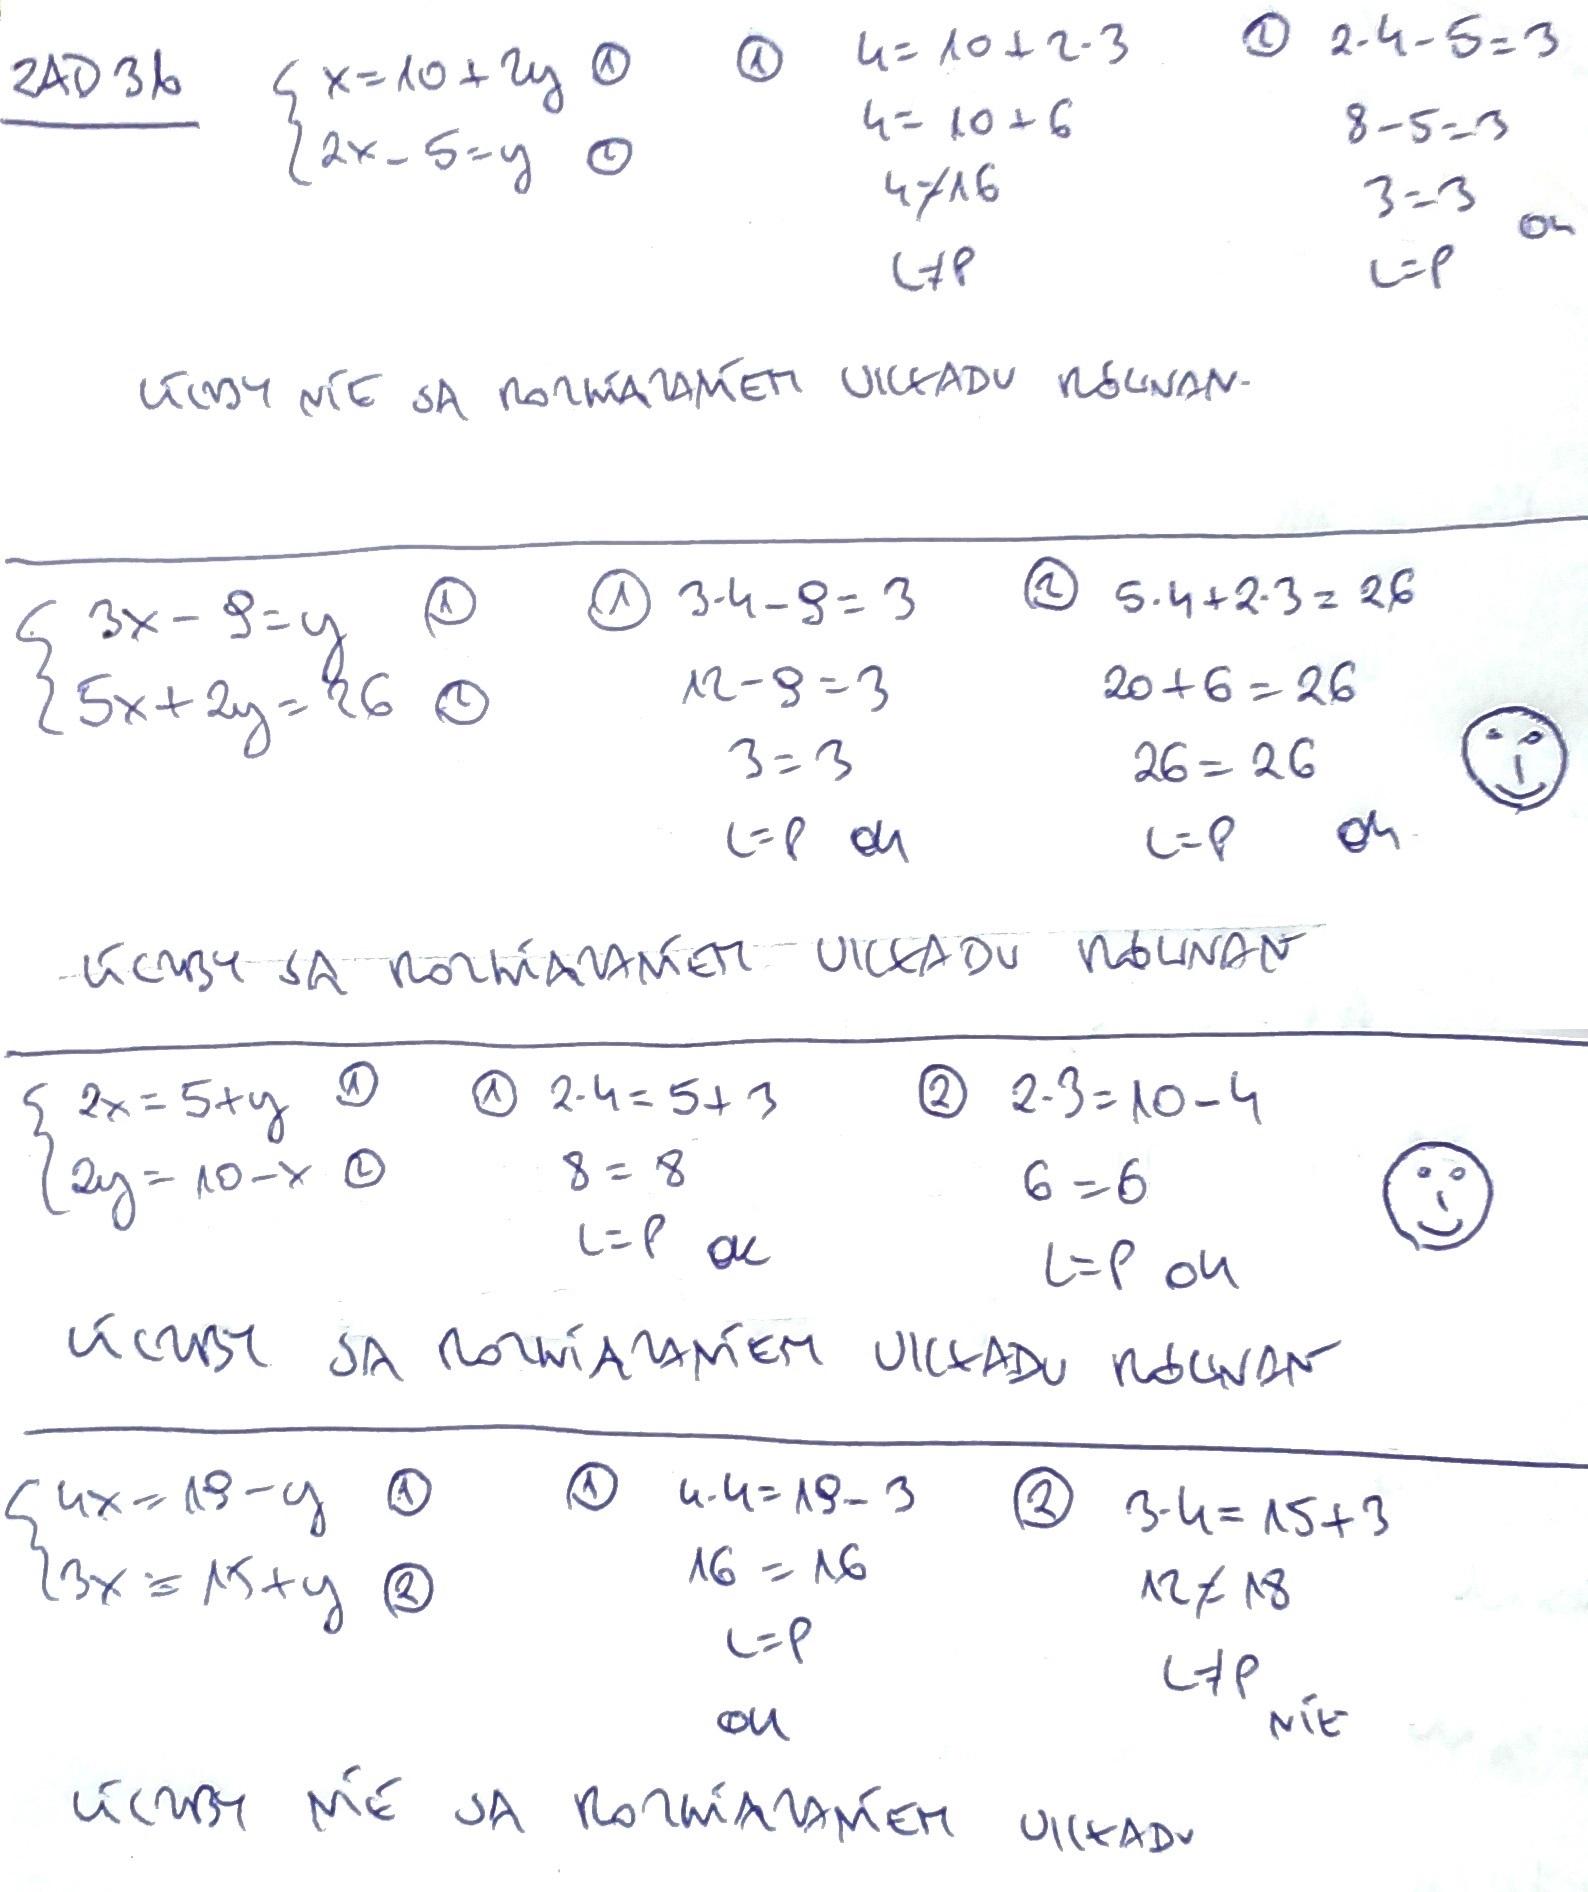 ZAD 3b
{ x=10+2y ①
2x-5=y ②
① 4=10+2·3
4=10+6
4≠16
L≠P
② 2·4-5=3
8-5=3
3=3
L=P ok
LICZBY NIE SA ROZWIAZANIEM UKŁADU RÓWNAN.
{ 3x-9=y ①
5x+2y=26 ②
① 3·4-9=3
12-9=3
3=3
L=P ok
② 5·4+2·3=26
20+6=26
26=26
L=P ok
LICZBY SA ROZWIAZANIEM UKŁADU RÓWNAŃ
{ 2x=5+y ①
2y=10-x ②
① 2·4=5+3
8=8
L=P ok
② 2·3=10-4
6=6
L=P ok
LICZBY SA ROZWIAZANIEM UKŁADU RÓWNAŃ
{ 4x=19-y ①
3x=15+y ②
① 4·4=19-3
16=16
L=P
ok
② 3·4=15+3
12≠18
L≠P
NIE
LICZBY NIE SA ROZWIAZANIEM UKŁADU